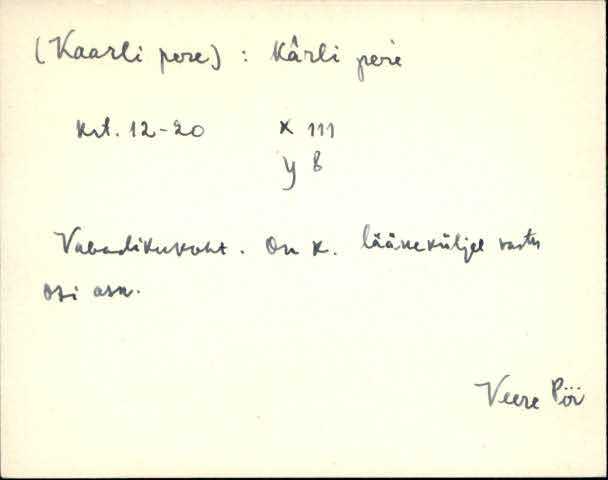 (Kaarli pere) : Kârli pere
krt. 12-20 x 111
y 8
Vabadikukoht. On k. lääneküljel vastu
Osi asu.
Veere Pöi